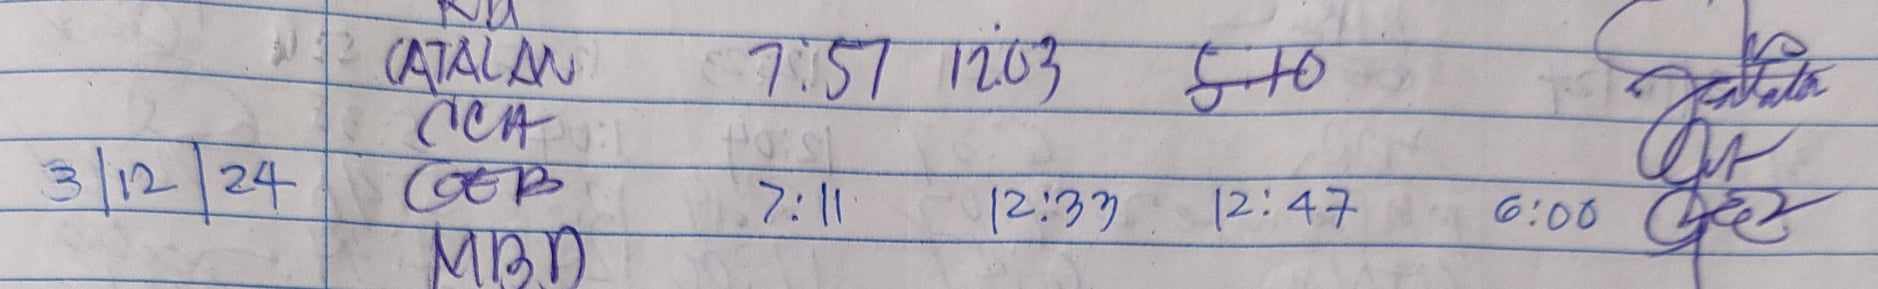 CATALAN 7:57 12:03 5:10
CCA
3/12/24 GEB 7:11 12:33 12:47 6:00
MBD